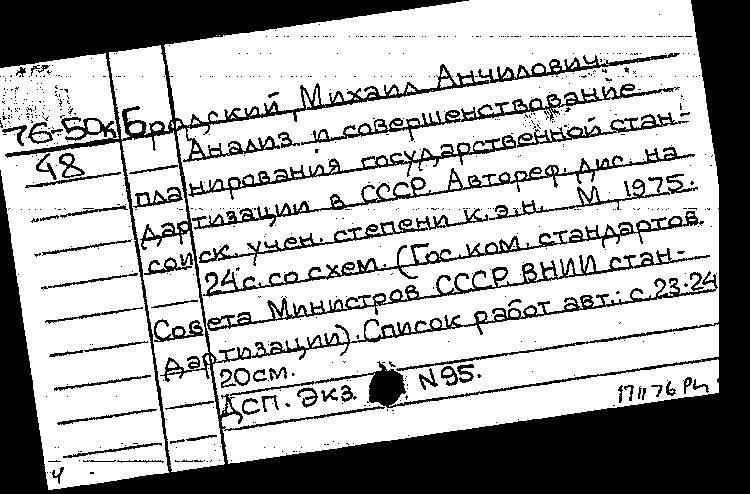 76-50к Бродский, Михаил Анчилович.
48 Анализ и совершенствование
планирования государственной стан-
дартизации в СССР. Автореф. дис. на
соиск. учен. степени к.э.н. М, 1975.
24 с. со схем. (Гос. ком. стандартов
Совета Министров СССР. ВНИИ стан-
дартизации). Список работ авт.: с. 23-24
20см.
ДСП. Экз. N 95.